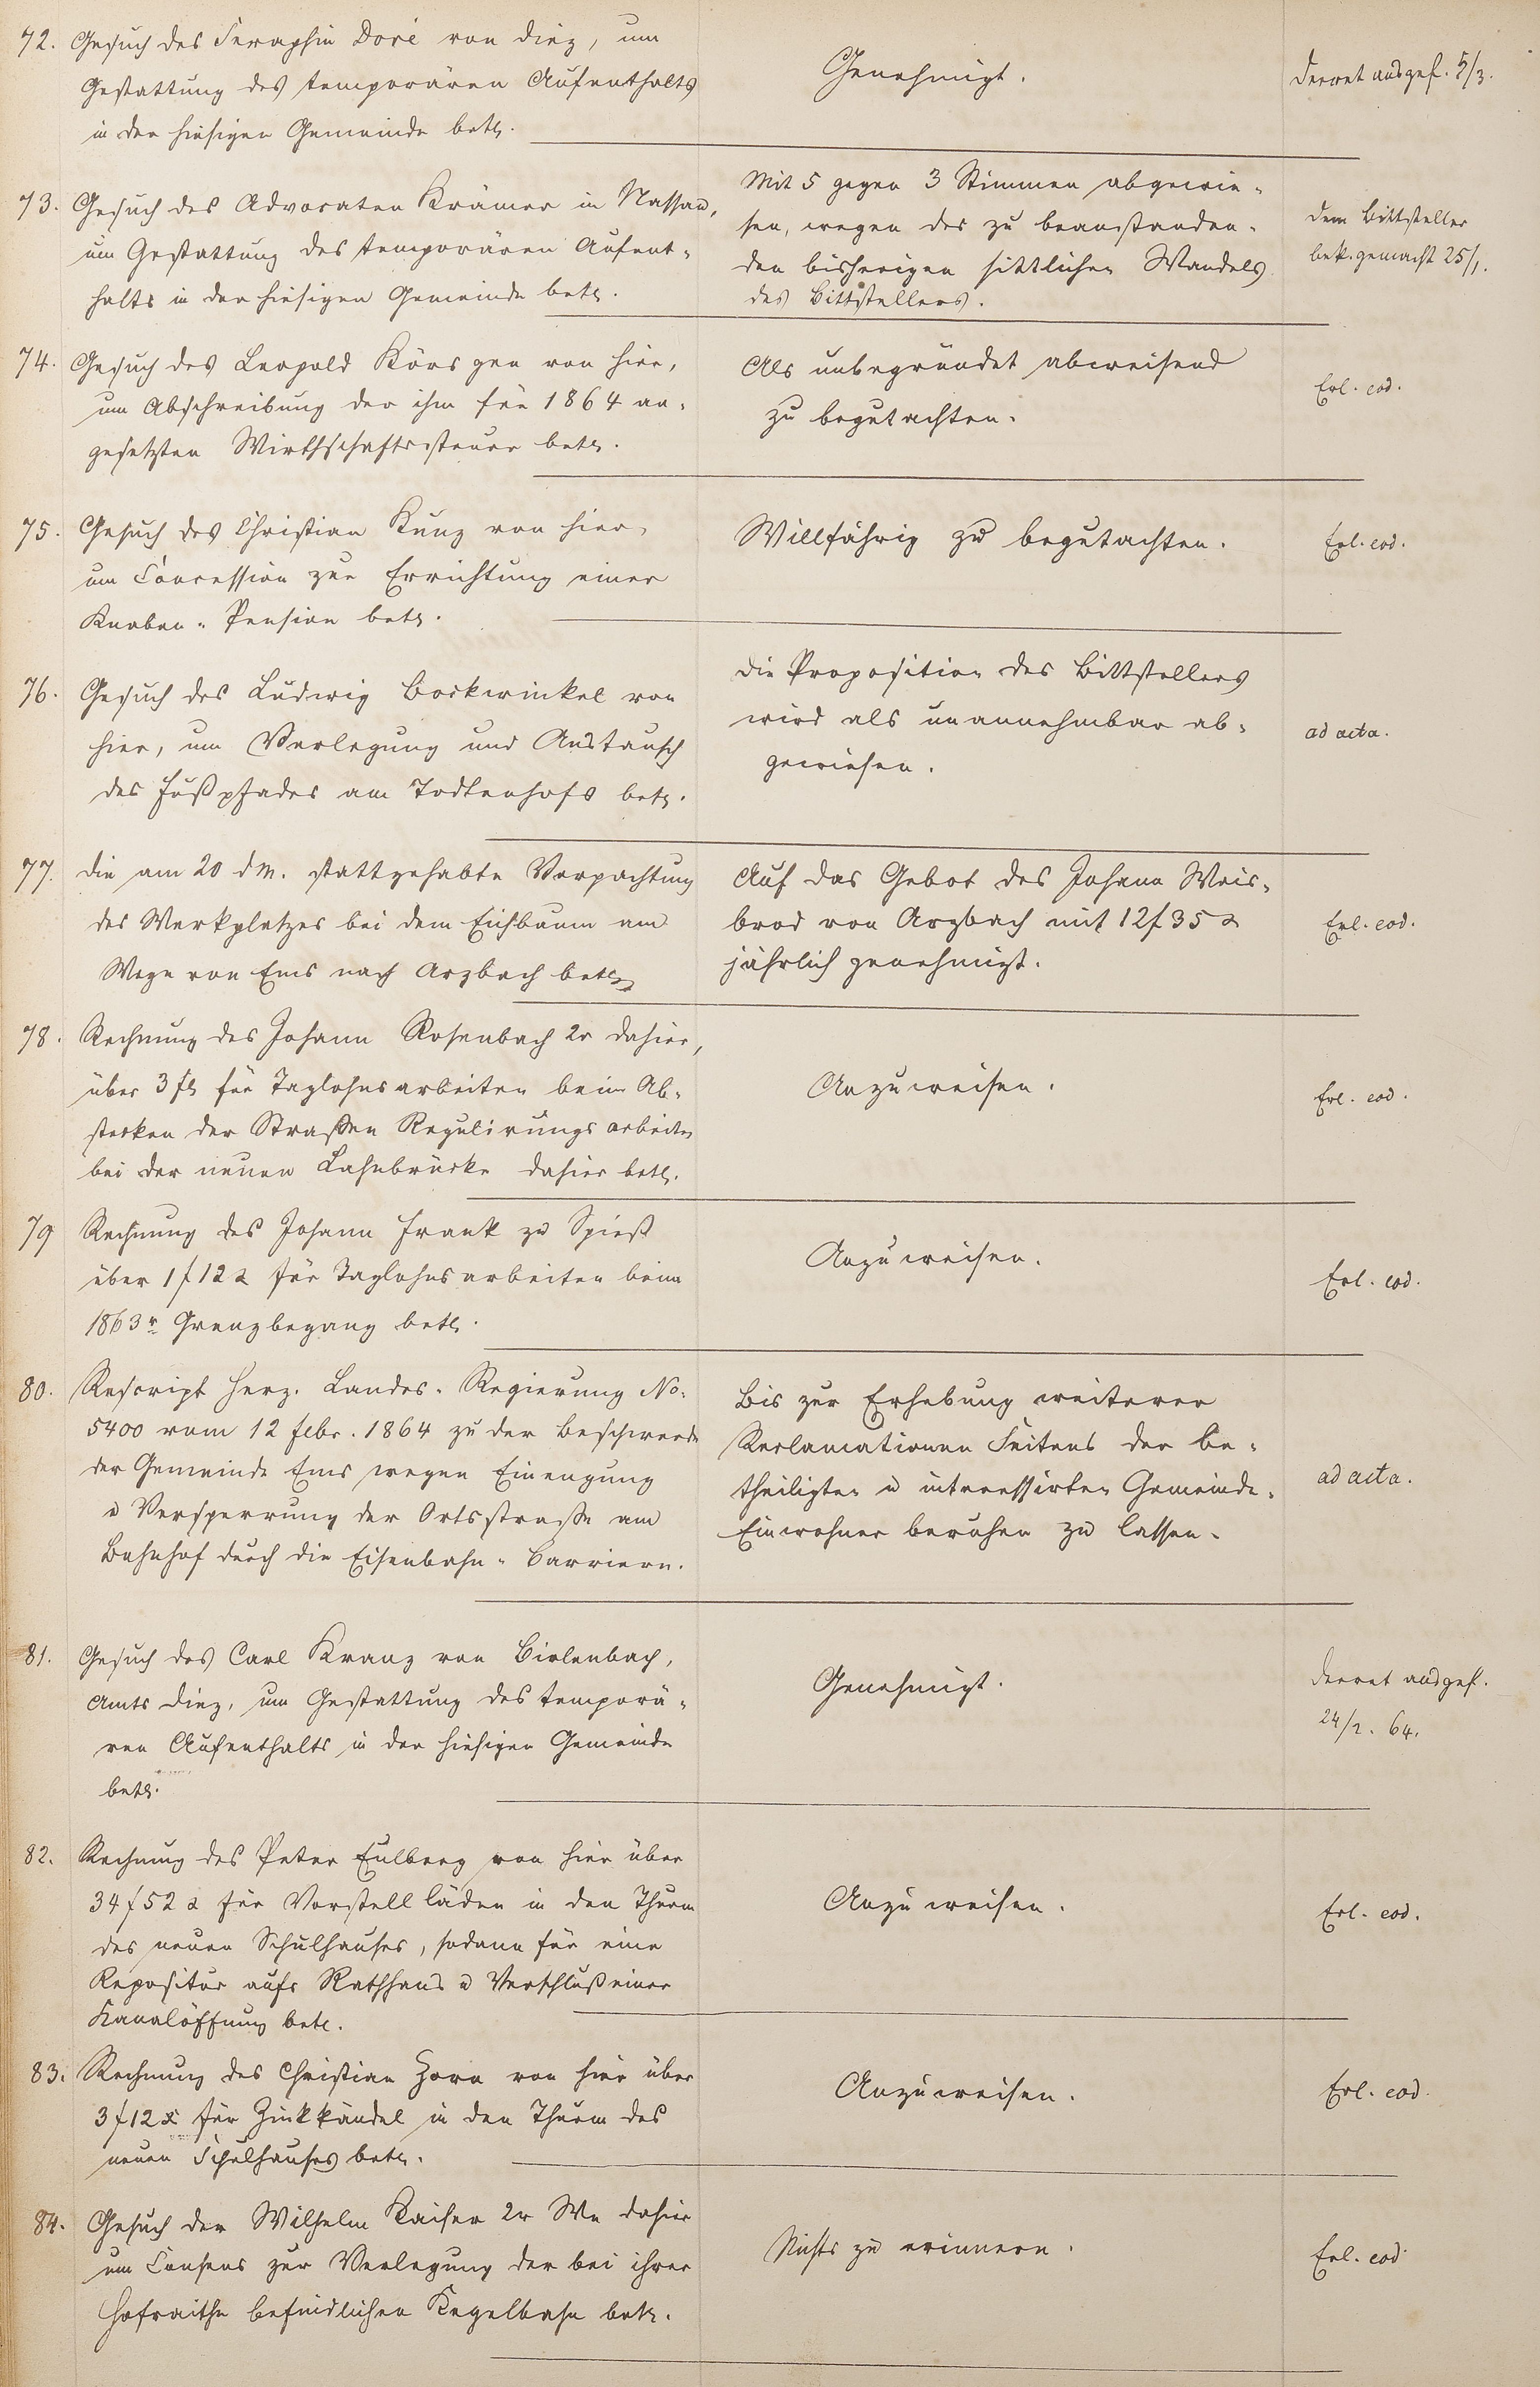 72. Gesuch des Seraphin Doré von Diez, um
Gestattung des temporären Aufenthalts
in der hiesigen Gemeinde betr.
Genehmigt.
Decret ausgef. 5/3.
73. Gesuch des Advocaten Krämer in Nassau,
um Gestattung des temporären Aufent-
halts in der hiesigen Gemeinde betr.
Mit 5 gegen 3 Stimmen abgewie-
sen, wegen des zu beanstanden-
den bisherigen sittlichen Wandels
des Bittstellers.
Dem Bittsteller
bek. gemacht 25/1.
74. Gesuch des Leopold Körsgen von hier,
um Abschreibung der ihm für 1864 an-
gesetzten Wirthschaftssteuer betr.
Als unbegründet abweisend
zu begutachten.
Erl. eod.
75. Gesuch des Christian Kunz von hier,
um Concession zur Errichtung einer
Knaben-Pension betr.
Willfährig zu begutachten.
Erl. eod.
76. Gesuch des Ludwig Bockwinkel von
hier, um Verlegung und Austausch
des Fußpfades am Todtenhofe betr.
Die Proposition des Bittstellers
wird als unannehmbar ab-
gewiesen.
ad acta.
77. Die am 20 d M. stattgehabte Verpachtung
des Werkplatzes bei dem Eichbaum am
Wege von Ems nach Arzbach betr.
Auf das Gebot des Johann Weis-
brod von Arzbach mit 12 f 35 x
jährlich genehmigt.
Erl. eod.
78. Rechnung des Johann Rosenbach 2r dahier,
über 3 fl für Taglohnsarbeiten beim Ab-
stecken der Straßen Regulirungsarbeiten
bei der neuen Lahnbrücke dahier betr.
Anzuweisen.
Erl. eod.
79 Rechnung des Johann Frank zu Spieß
über 1 f 12 x für Taglohnsarbeiten beim
1863r Grenzbegang betr.
Anzuweisen.
Erl. eod.
80. Rescript Herz. Landes-Regierung No.
5400 vom 12 Febr. 1864 zu der Beschwerde
der Gemeinde Ems wegen Einengung
u Versperrung der Ortsstraße am
Bahnhof durch die Eisenbahn-Barriern.
Bis zur Erhebung weiterer
Reclamationen Seitens der be-
theiligten u interessirten Gemeinde-
Einwohner beruhen zu lassen.
ad acta.
81. Gesuch des Carl Kranz von Birlenbach,
Amts Diez, um Gestattung des temporä-
ren Aufenthalts in der hiesigen Gemeinde
betr.
Genehmigt.
Decret ausgef.
24/2. 64.
82. Rechnung des Peter Eulberg von hier über
34 f 52 x für Vorstellläden in den Thurm
des neuen Schulhauses, sodann für eine
Repositur aufs Rathhaus u Verschluß einer
Kanalöffnung betr.
Anzuweisen.
Erl. eod.
83. Rechnung des Christian Horn von hier über
3 f 12 x für Zinkkändel in den Thurm des
neuen Schulhauses betr.
Anzuweisen.
Erl. eod.
84. Gesuch der Wilhelm Kaiser 2r We dahier
um Consens zur Verlegung der bei ihrer
Hofraithe befindlichen Kegelbahn betr.
Nichts zu erinnern.
Erl. eod.